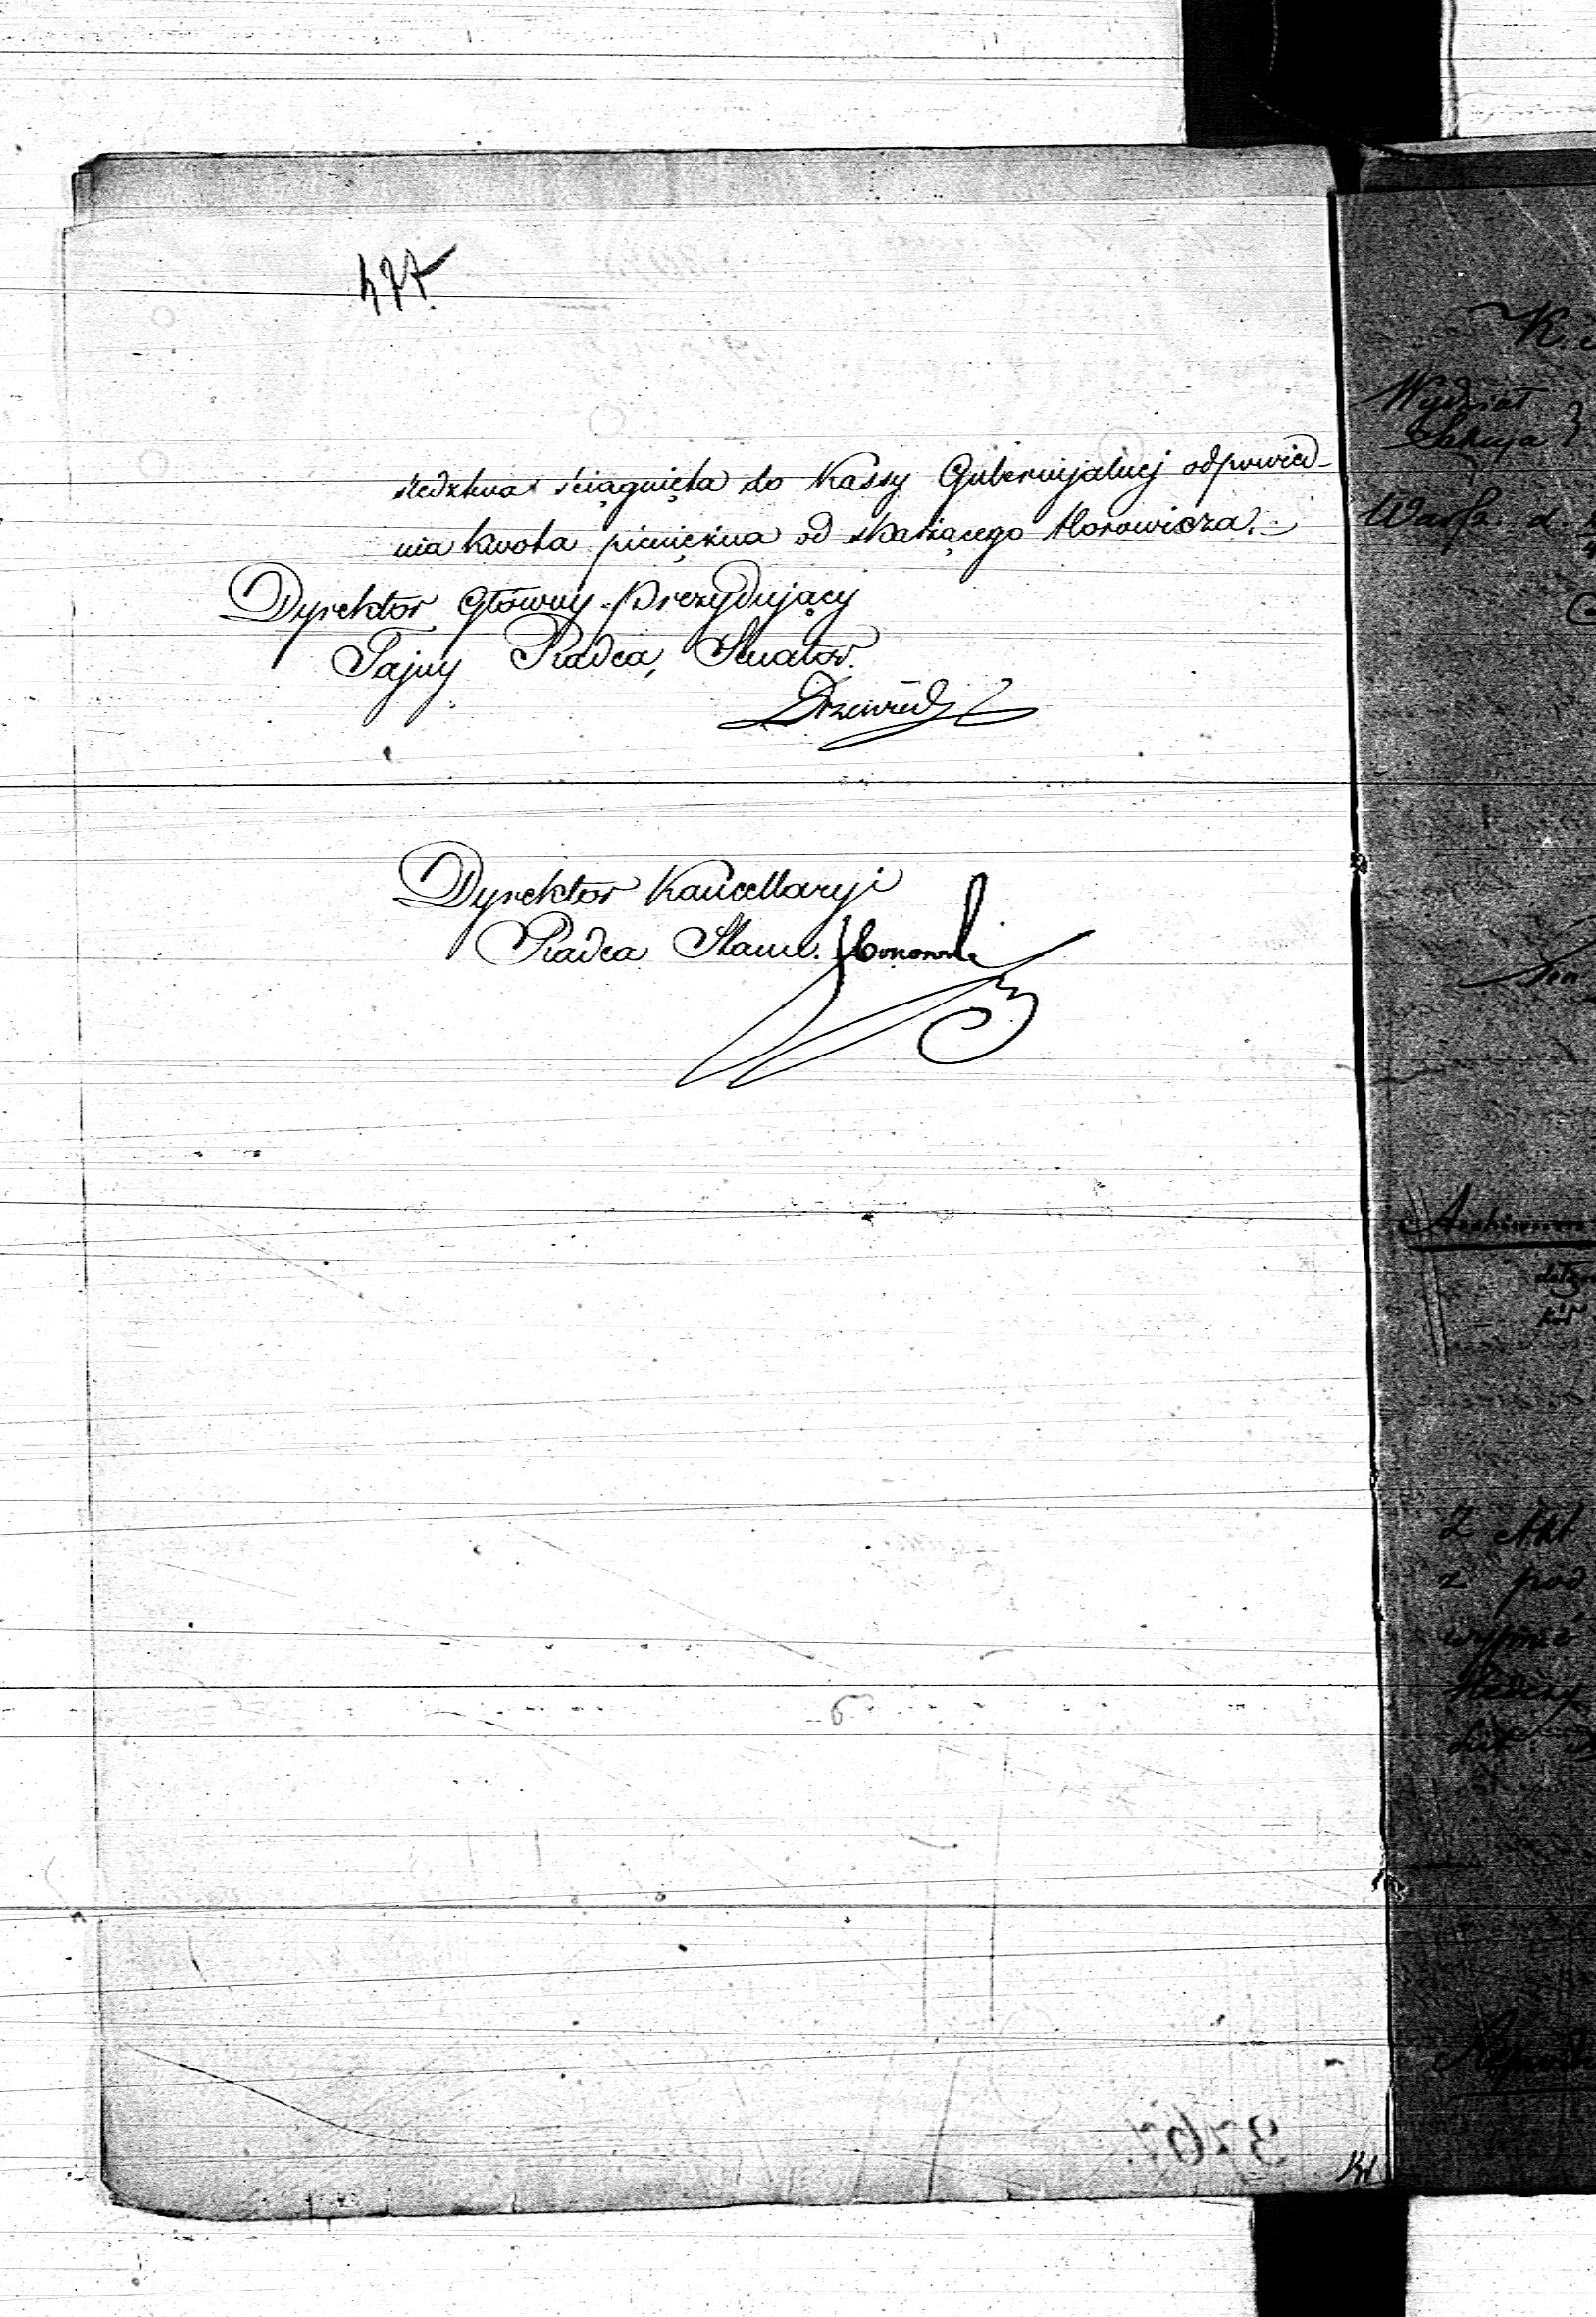 477.
śledztwa ściągnięta do Kassy Gubernijalnej odpowied-
nia kwota pieniężna od skarżącego Horowicza.
Dyrektor Główny Prezydujący
Tajny Radca, Senator.
Dyrektor Kancellaryi
Radca Stanu.
K.
Wydział
Sekcya
Warsz. d
Archiwum
Z Akt
z pod
wyjąć
3767.